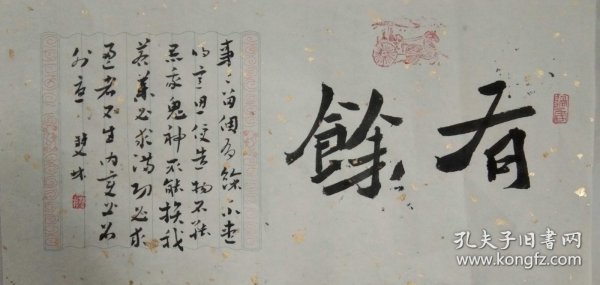 有餘
事〻留個有餘不盡
的意思便造物不能
忌我鬼神不能損我
若業必求滿功必求
盈者不生內變必召
外憂
孔夫子旧書网
www.kongfz.com